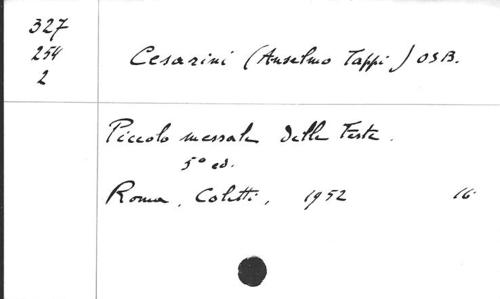 327
254
2
Cesarini (Anselmo Tappi) OSB.
Piccolo messale delle Feste.
5° ed.
Roma, Coletti, 1952 16°